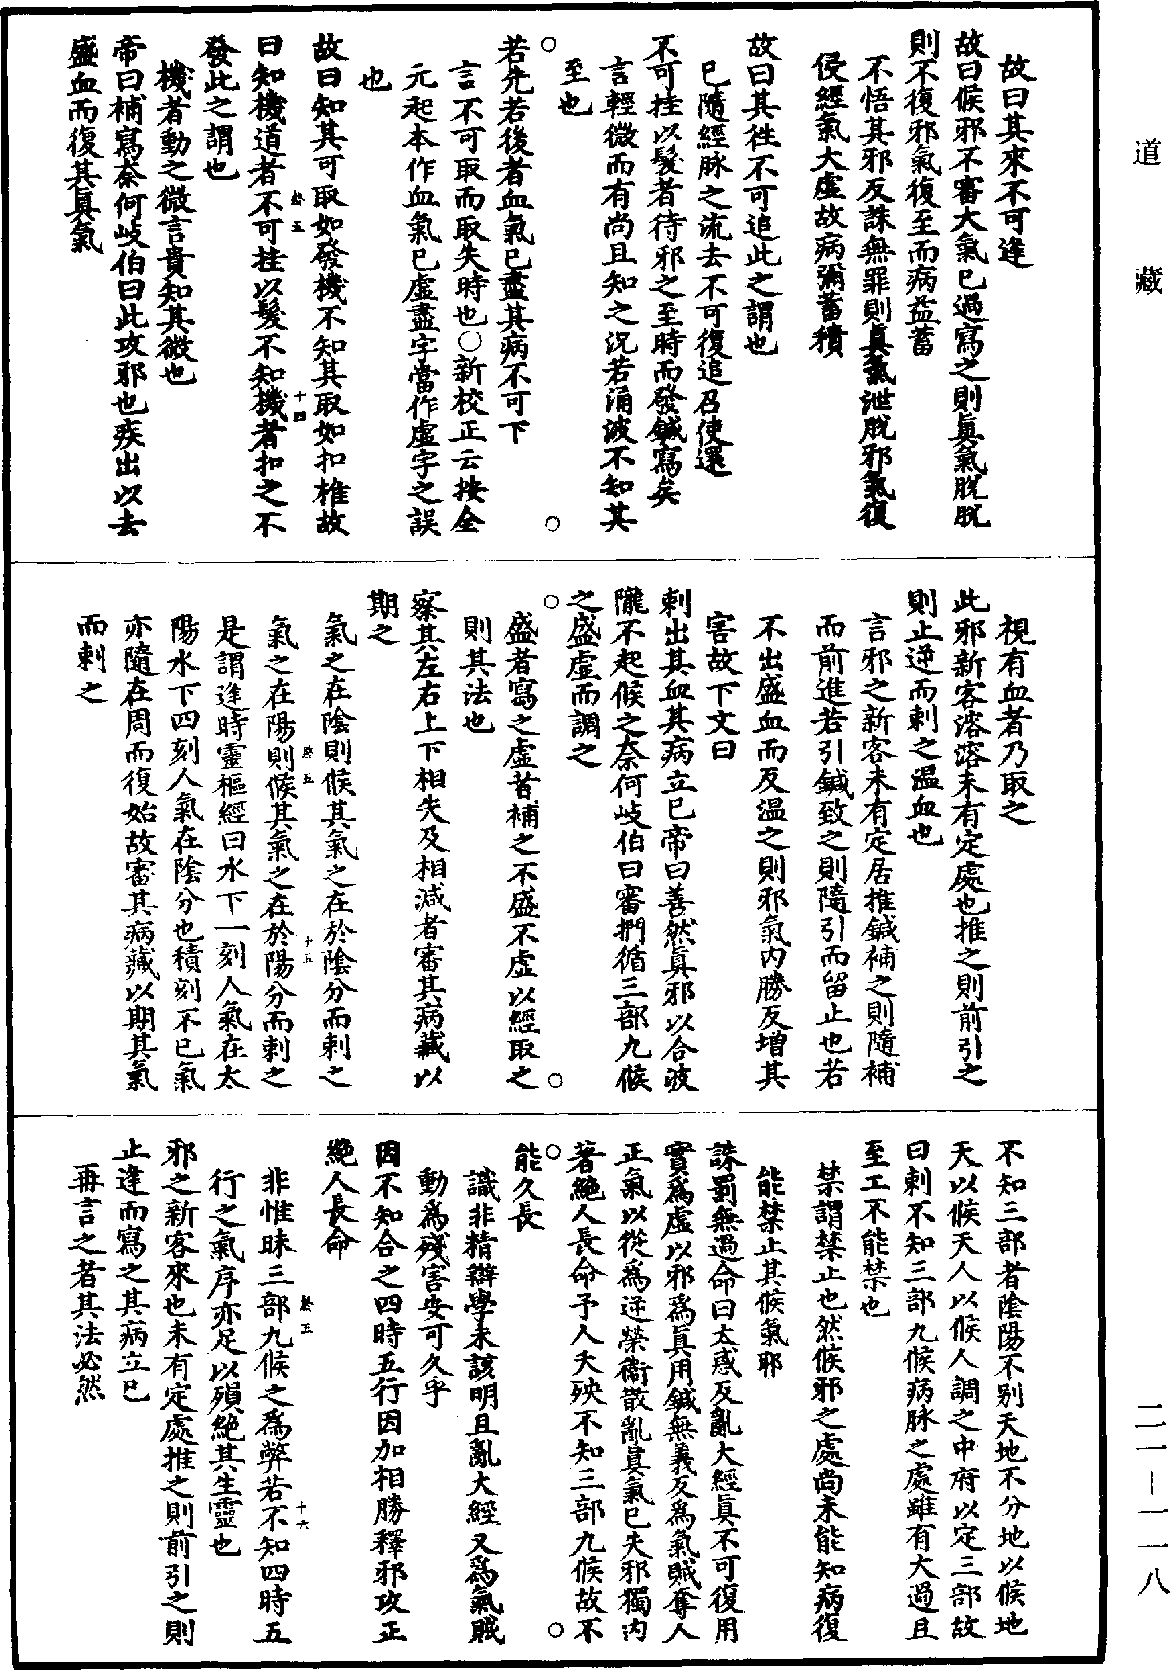 道藏
故曰其來不可逢
故曰候邪不審大氣已過寫之則眞氣脫脫
則不復邪氣復至而病益蓄
不悟其邪反誅無罪則眞氣泄脫邪氣復
侵經氣大虛故病彌蓄積
故曰其徃不可追此之謂也
已隨經脉之流去不可復追召使還
不可挂以髮者待邪之至時而發鍼寫矣
言輕微而有尚且知之况若涌波不知其
至也
若先若後者血氣已盡其病不可下
言不可取而取失時也○新校正云按全
元起本作血氣已虛盡字當作虛字之誤
也
故曰知其可取如發機不知其取如扣椎故
曰知機道者不可挂以髮不知機者扣之不
發此之謂也
機者動之微言貴知其微也
帝曰補寫柰何岐伯曰此攻邪也疾出以去
盛血而復其眞氣
視有血者乃取之
此邪新客溶溶未有定處也推之則前引之
則止逆而刺之溫血也
言邪之新客未有定居推鍼補之則隨補
而前進若引鍼致之則隨引而留止也若
不出盛血而反溫之則邪氣内勝反增其
害故下文曰
刺出其血其病立已帝曰善然眞邪以合波
隴不起候之奈何岐伯曰審捫循三部九候
之盛虛而調之
盛者寫之虛者補之不盛不虛以經取之
則其法也
察其左右上下相失及相减者審其病藏以
期之
氣之在陰則候其氣之在於陰分而刺之
氣之在陽則候其氣之在於陽分而刺之
是謂逢時靈樞經曰水下一刻人氣在太
陽水下四刻人氣在陰分也積刻不已氣
亦隨在周而復始故審其病藏以期其氣
而刺之
不知三部者陰陽不别天地不分地以候地
天以候天人以候人調之中府以定三部故
曰刺不知三部九候病脉之處雖有大過且
至工不能禁也
禁謂禁止也然候邪之處尚未能知病復
能禁止其候氣耶
誅罰無過命曰太惑反亂大經眞不可復用
實爲虛以邪爲眞用鍼無義反爲氣賊奪人
正氣以從爲逆榮衞散亂眞氣已失邪獨内
著絶人長命予人夭殃不知三部九候故不
能久長
識非精辯學未該明且亂大經又爲氣賊
動爲殘害安可久乎
因不知合之四時五行因加相勝釋邪攻正
絶人長命
非惟昧三部九候之爲弊若不知四時五
行之氣序亦足以殞絶其生靈也
邪之新客來也未有定處推之則前引之則
止逢而寫之其病立已
再言之者其法必然
二一－一一八